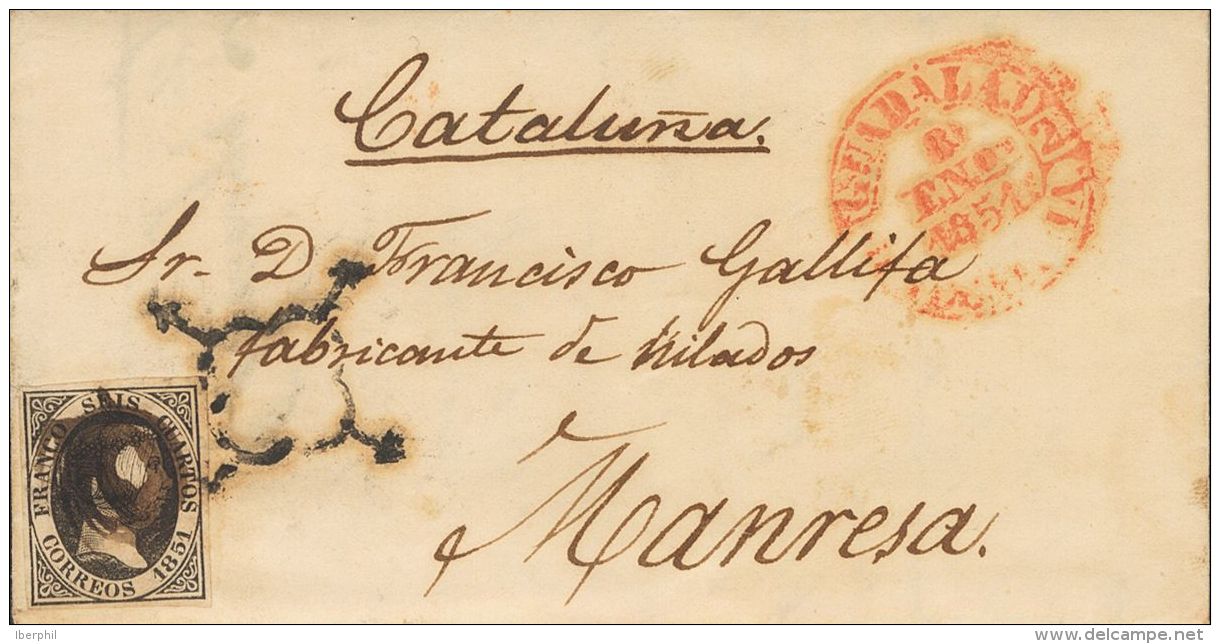 Cataluña.
GUADALAXARA
8
ENO
1851
Sr. D. Francisco Gallifa
fabricante de hilados
Manresa.
FRANCO SEIS CUARTOS
CORREOS 1851
Iberphil
www.delcampe.net